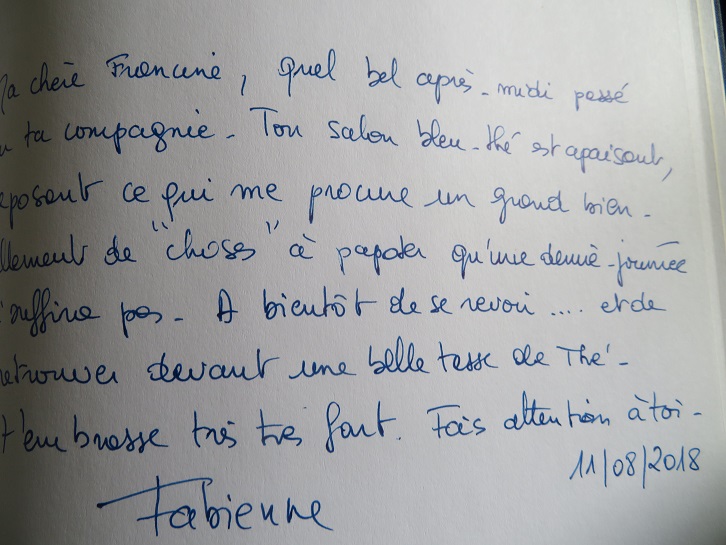 a chère Francine, quel bel après-midi passé
n ta compagnie - Ton salon bleu-thé est apaisant,
eposant ce qui me procure un grand bien -
llement de "choses" à papoter qu'une demie-journée
suffira pas - A bientôt de se revoir .... et de
etrouver devant une belle tasse de Thé -
t'embrasse très très fort. Fais attention à toi -
11/08/2018
Fabienne